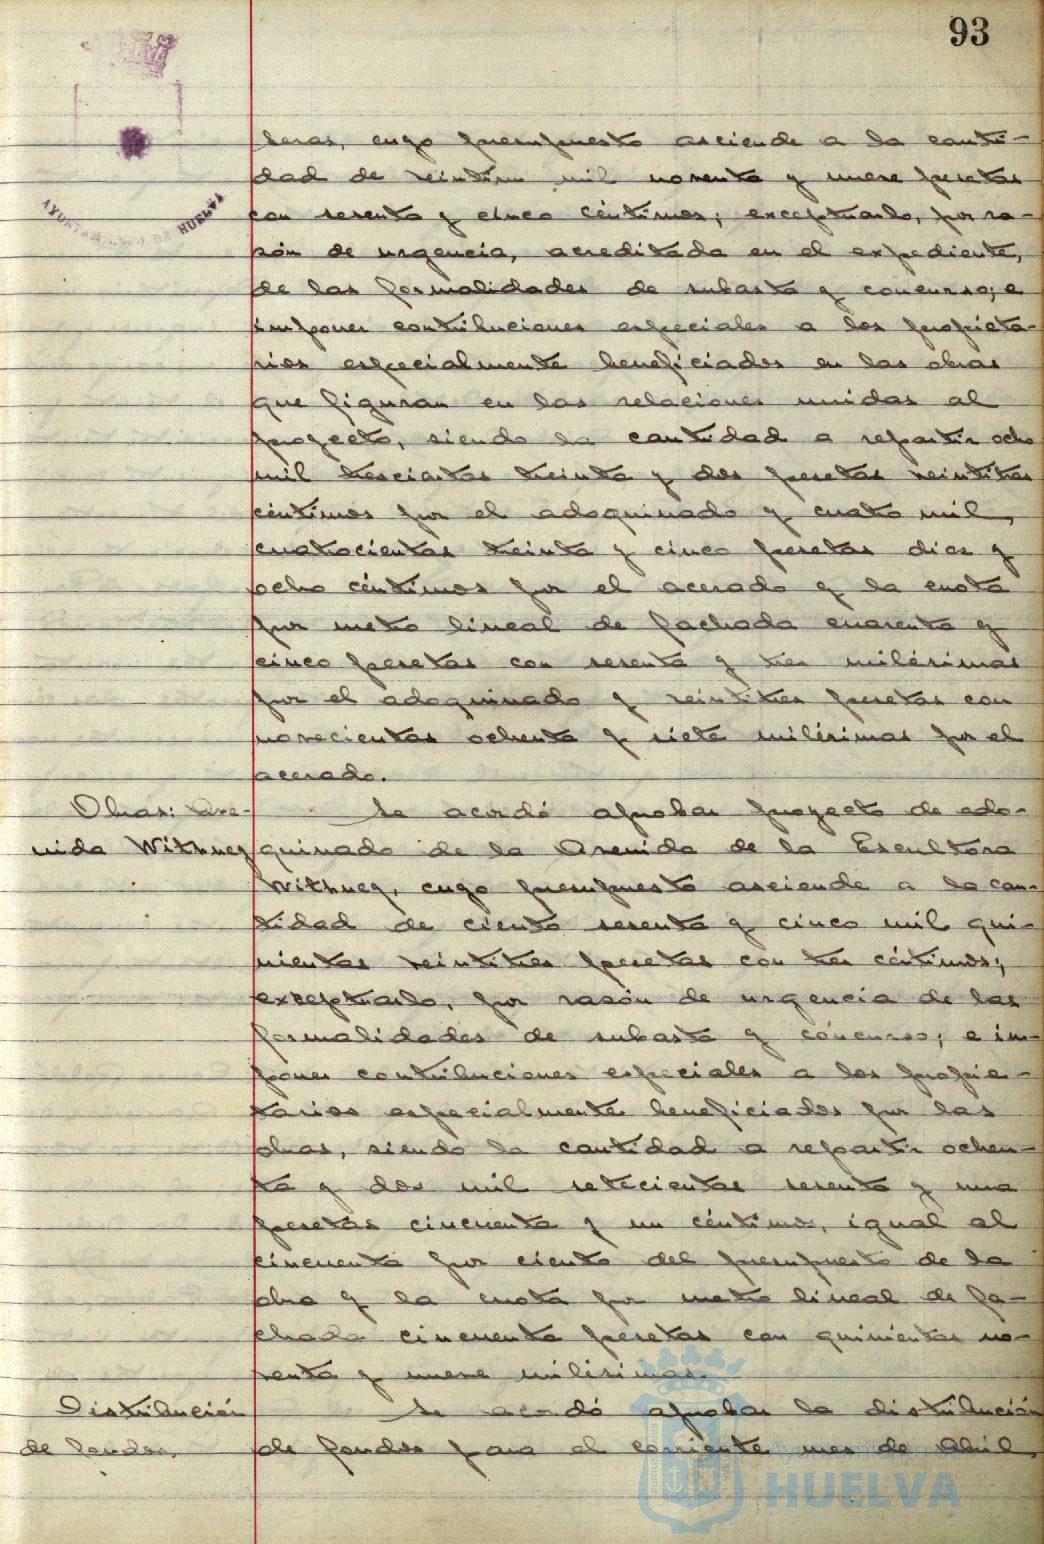 93
AYUNTAMIENTO DE HUELVA
seras, cuyo presupuesto asciende a la canti-
dad de veintiun mil noventa y nueve pesetas
con sesenta y cinco céntimos; exceptuarlo, por ra-
zón de urgencia, acreditada en el expediente,
de las formalidades de subasta y concurso; e
imponer contribuciones especiales a los propieta-
rios especialmente beneficiados en las obras
que figuran en las relaciones unidas al
proyecto, siendo la cantidad a repartir ocho
mil trescientas treinta y dos pesetas veintitres
céntimos por el adoquinado y cuatro mil
cuatrocientas treinta y cinco pesetas diez y
ocho céntimos por el acerado y la cuota
por metro lineal de fachada cuarenta y
cinco pesetas con sesenta y tres milésimas
por el adoquinado y veintitres pesetas con
novecientas ochenta y siete milésimas por el
acerado.
Obras: Ave-
nida Withney
Se acordó aprobar proyecto de ado-
quinado de la Avenida de la Escultora
Withney, cuyo presupuesto asciende a la can-
tidad de ciento sesenta y cinco mil qui-
nientas veintitres pesetas con tres céntimos;
exceptuarlo, por razón de urgencia de las
formalidades de subasta y concurso; e im-
poner contribuciones especiales a los propie-
tarios especialmente beneficiados por las
obras, siendo la cantidad a repartir ochen-
ta y dos mil setecientas sesenta y una
pesetas cincuenta y un céntimos, igual al
cincuenta por ciento del presupuesto de la
obra y la cuota por metro lineal de fa-
chada cincuenta pesetas con quinientas no-
venta y nueve milésimas.
Distribución
de fondos.
Se acordó aprobar la distribución
de fondos para el corriente mes de Abril,
Ayuntamiento de
HUELVA